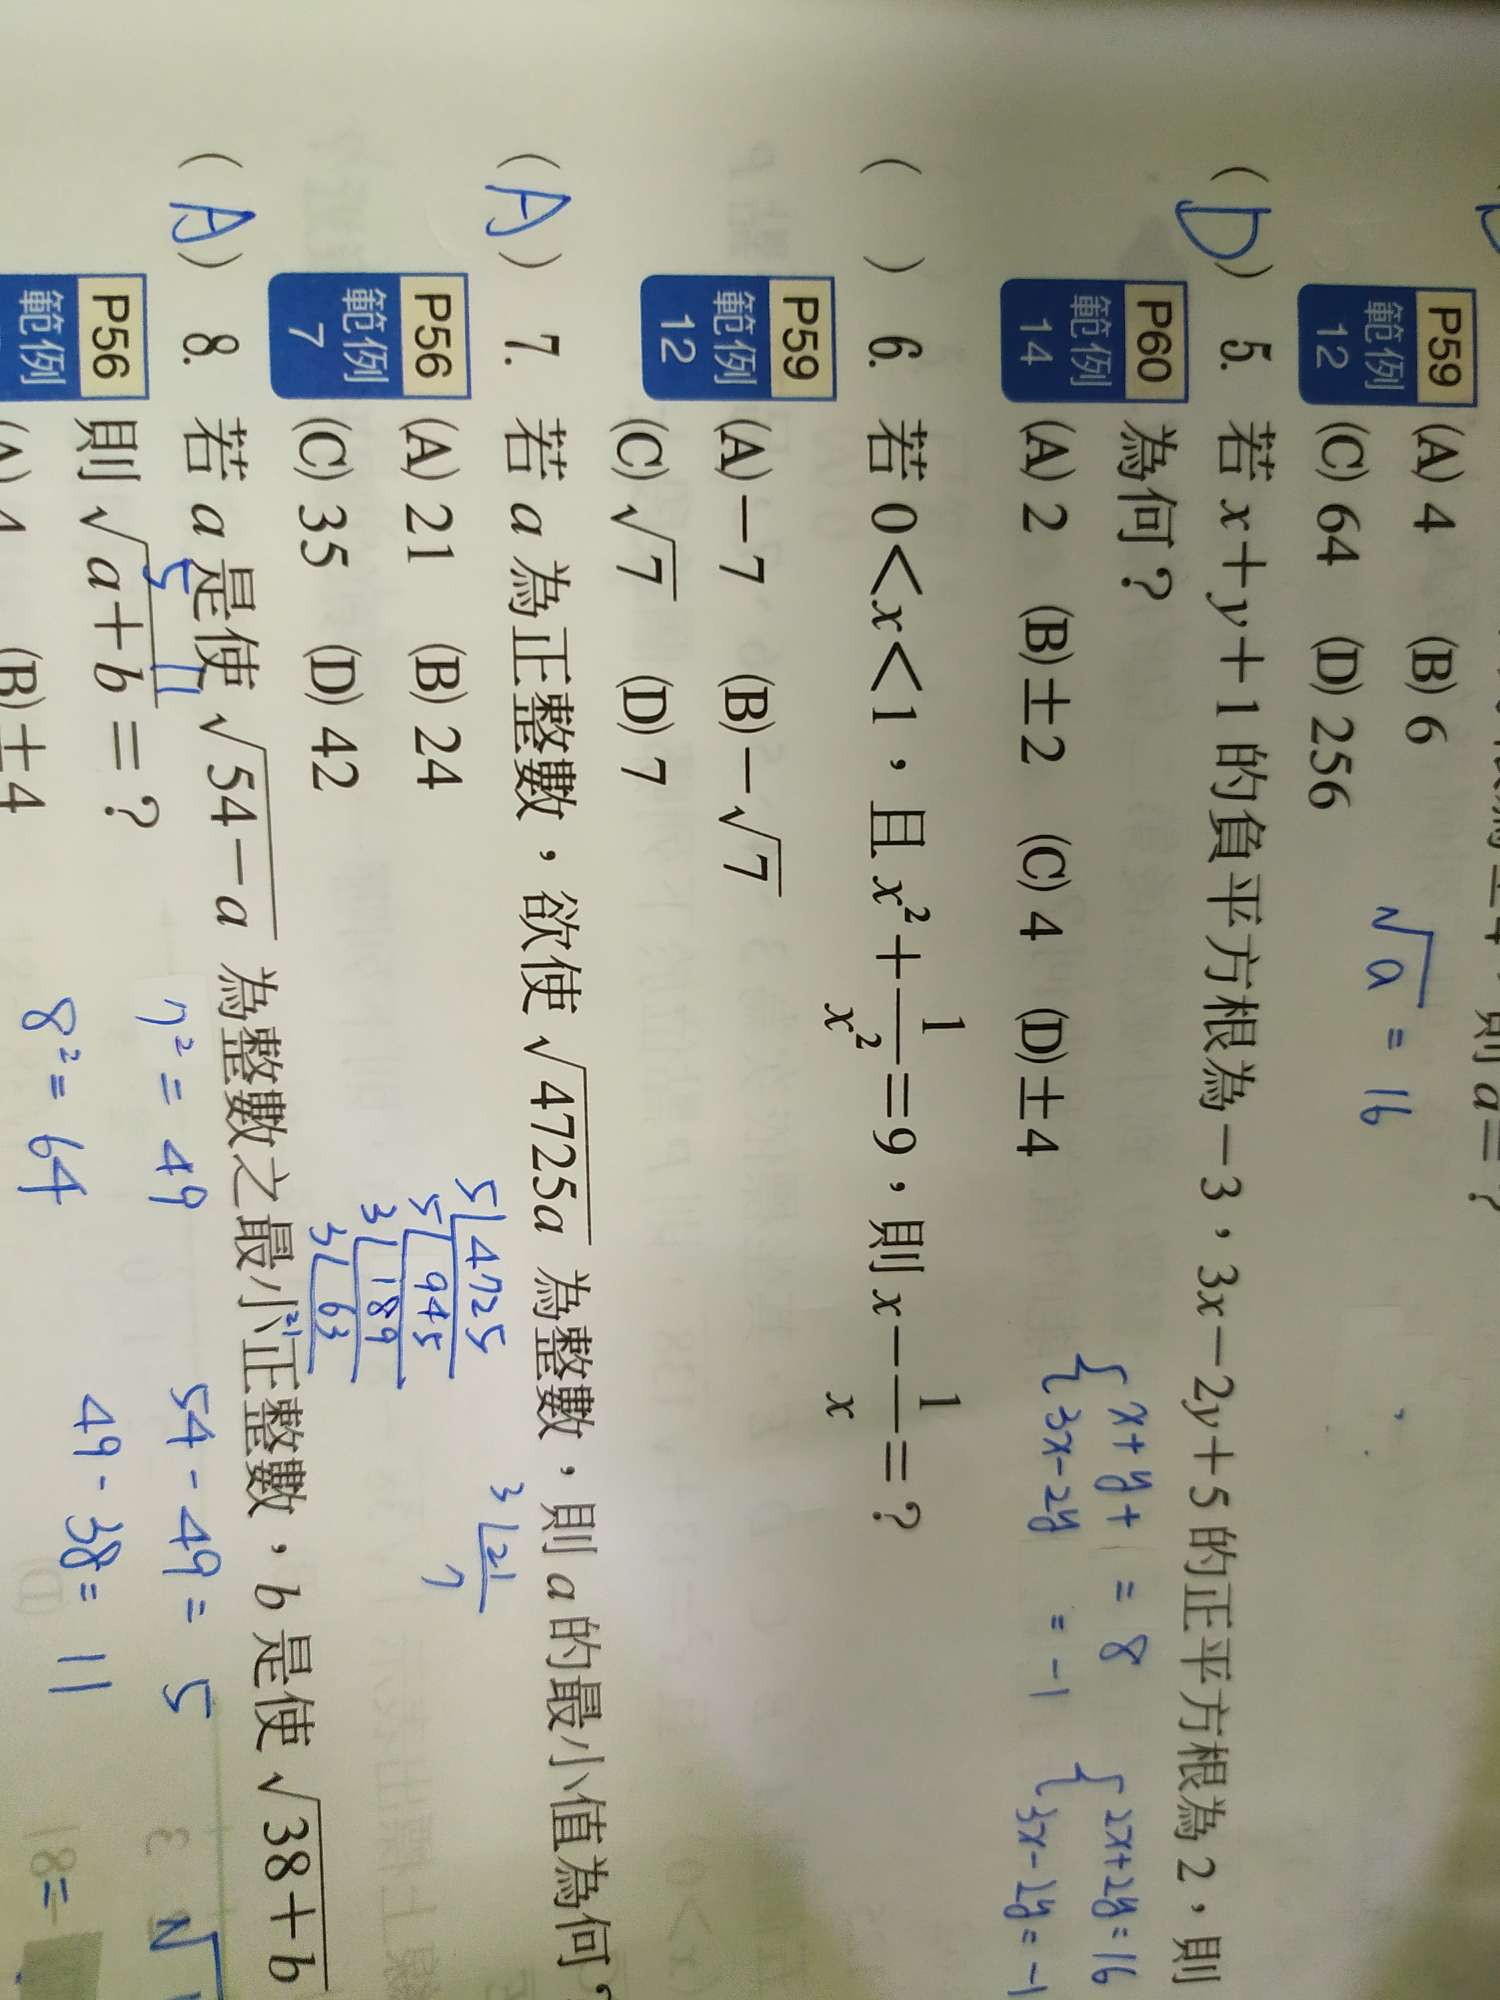 P59
範例
12
(A) 4 (B) 6
(C) 64 (D) 256
√a = 16
(D) 5. 若 x+y+1 的負平方根為 −3，3x−2y+5 的正平方根為 2，則
P60
範例
14
為何？
(A) 2 (B) ±2 (C) 4 (D) ±4
{ x+y+1 = 8
3x-2y = -1
{ 2x+2y=16
3x-2y=-1
( ) 6. 若 0<x<1，且 x²+1/x²=9，則 x−1/x=？
P59
範例
12
(A) −7 (B) −√7
(C) √7 (D) 7
(A) 7. 若 a 為正整數，欲使 √4725a 為整數，則 a 的最小值為何？
P56
範例
7
(A) 21 (B) 24
(C) 35 (D) 42
5 4725
5 945
3 189
3 63
21
3 21
7
(A) 8. 若 a 是使 √54−a 為整數之最小正整數，b 是使 √38+b
P56
範例
則 √a+b =？
5 11
7² = 49 54 - 49 = 5
8² = 64 49 - 38 = 11
(B) ±4